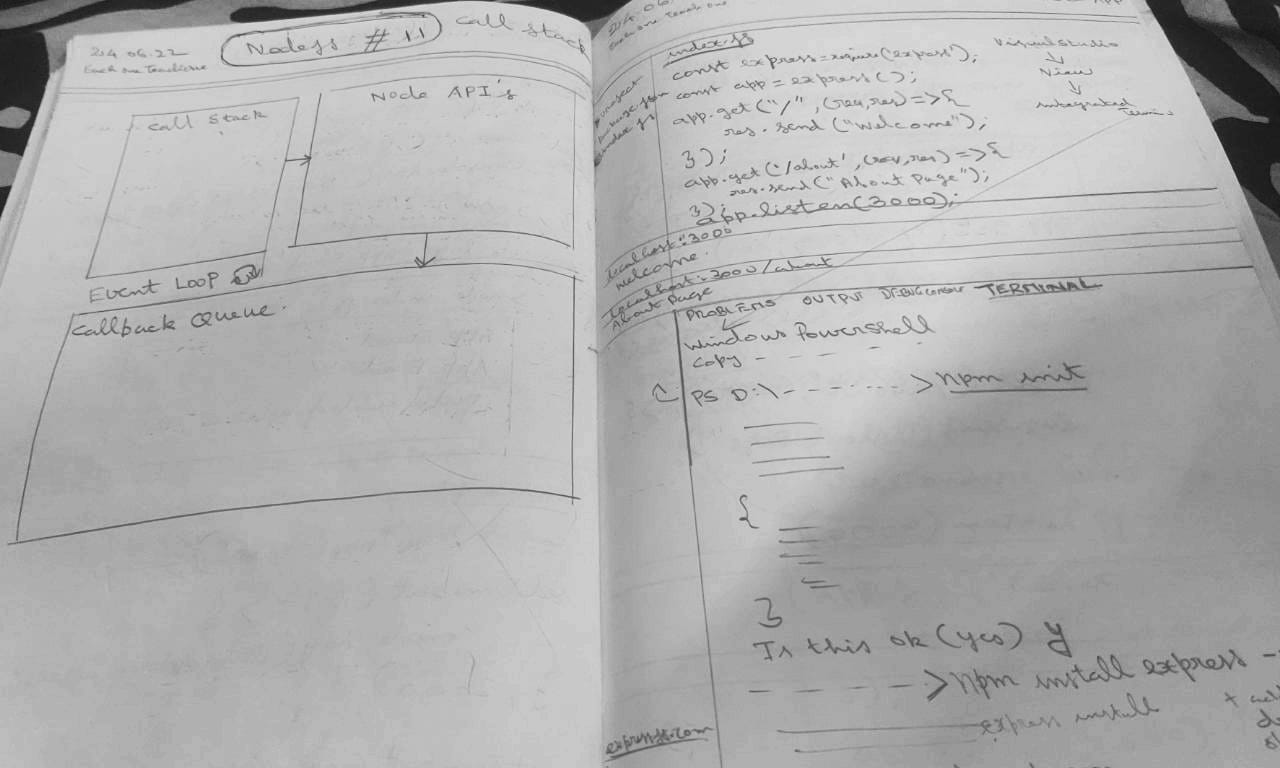 24.06.22
Each one Teach one
NodeJs # 11
Call Stack
Call Stack
Node API's
Event Loop
Callback Queue.
24.06.
Each one Teach one
App
project
package.json
index.js
index.js
const express = require('express');
const app = express();
app.get("/", (req,res) => {
res.send ("Welcome");
});
app.get('/about', (req,res) => {
res.send("About Page");
});
app.listen(3000);
Visual Studio
View
integrated
Termin
localhost:3000
Welcome.
localhost:3000/about
About Page
PROBLEMS OUTPUT DEBUG CONSOLE TERMINAL
Windows Powershell
Copy - - - -
PS D:\ - - - - - - - > npm init
{
}
Is this ok (yes) y
- - - - - > npm install express -
express install
expressjs.com